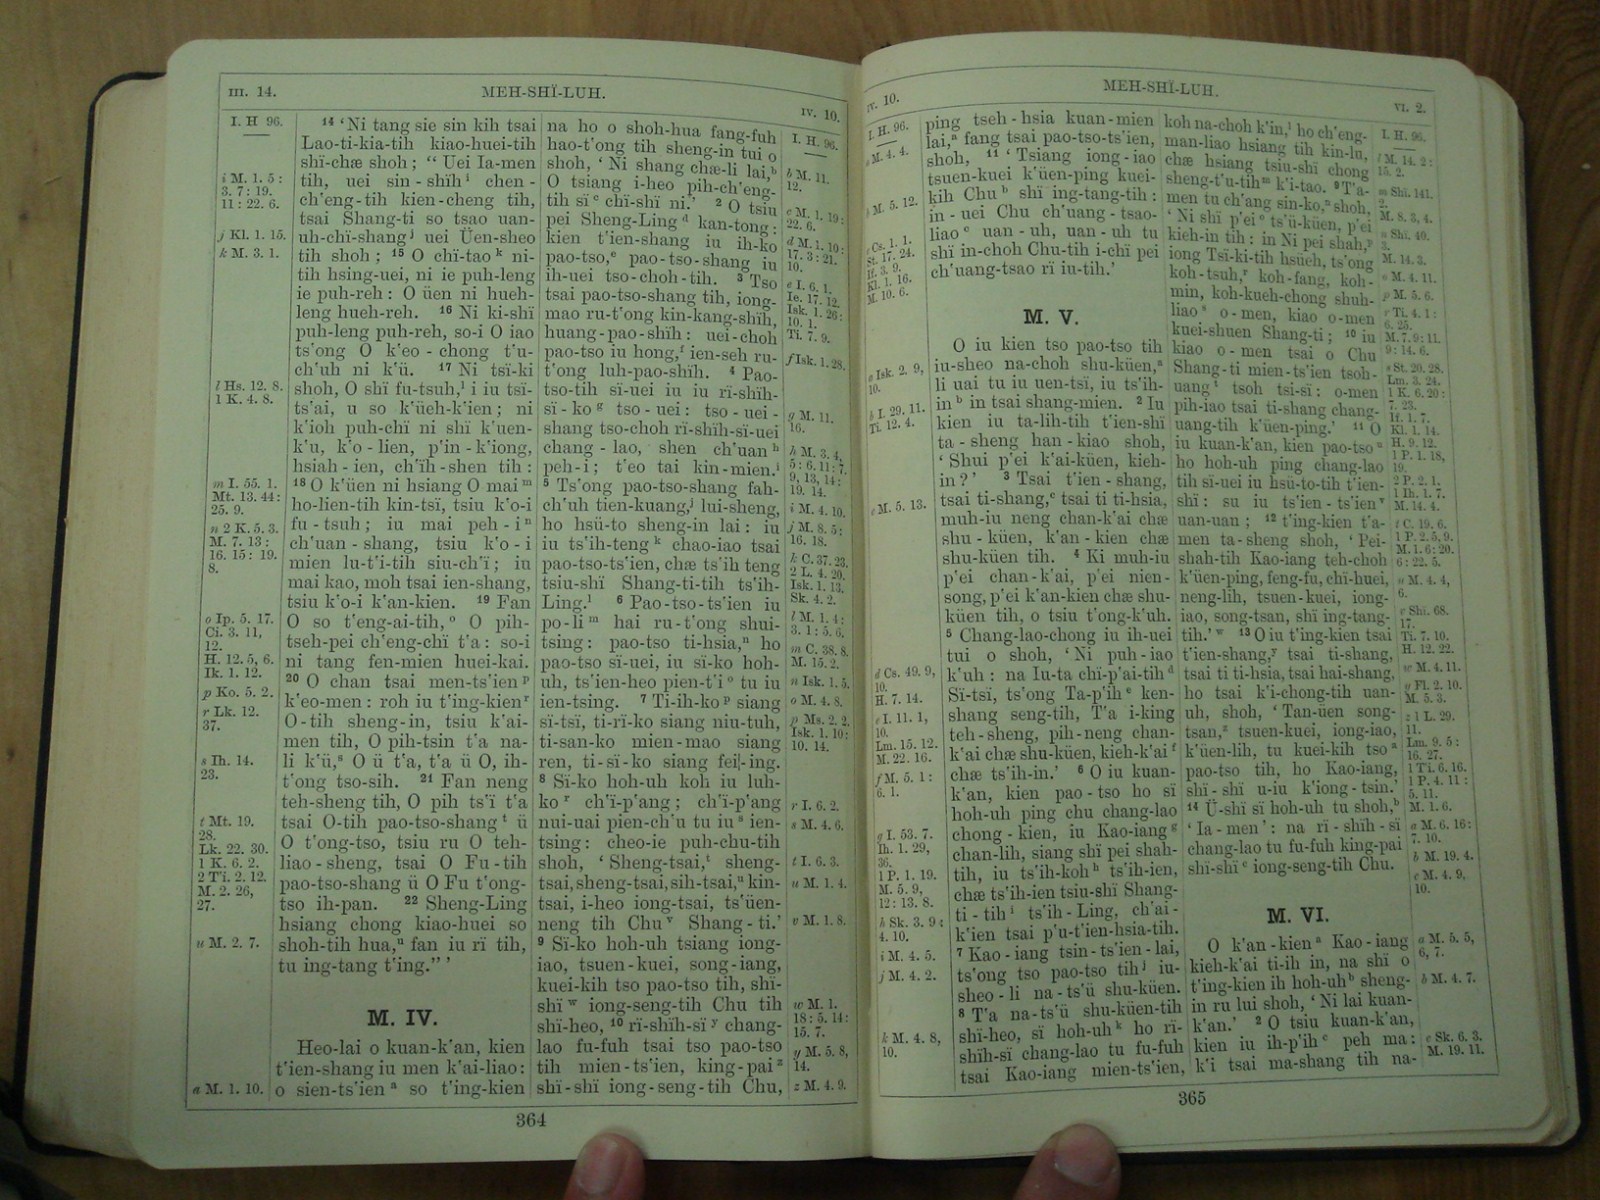 III. 14.
MEH-SHÏ-LUH.
IV. 10.
I. H 96.
i M. 1. 5 :
3. 7 : 19.
11 : 22. 6.
j Kl. 1. 15.
k M. 3. 1.
l Hs. 12. 8.
1 K. 4. 8.
m I. 55. 1.
Mt. 13. 44 :
25. 9.
n 2 K. 5. 3.
M. 7. 13 :
16. 15 : 19.
8.
o Ip. 5. 17.
Ci. 3. 11,
12.
H. 12. 5, 6.
Ik. 1. 12.
p Ko. 5. 2.
r Lk. 12.
37.
s Ih. 14.
23.
t Mt. 19.
28.
Lk. 22. 30.
1 K. 6. 2.
2 Ti. 2. 12.
M. 2. 26,
27.
u M. 2. 7.
a M. 1. 10.
14 ‘Ni tang sie sin kih tsai
Lao-ti-kia-tih kiao-huei-tih
shï-chæ shoh ; “ Uei Ia-men
tih, uei sin - shïh i chen -
ch'eng-tih kien-cheng tih,
tsai Shang-ti so tsao uan-
uh-chï-shang j uei Üen-sheo
tih shoh ; 15 O chï-tao k ni-
tih hsing-uei, ni ie puh-leng
ie puh-reh : O üen ni hueh-
leng hueh-reh. 16 Ni ki-shï
puh-leng puh-reh, so-i O iao
ts'ong O k'eo - chong t'u-
ch'uh ni k'ü. 17 Ni tsï-ki
shoh, O shï fu-tsuh, l i iu tsï-
ts'ai, u so k'üeh-k'ien ; ni
k'ioh puh-chï ni shï k'uen-
k'u, k'o - lien, p'in - k'iong,
hsiah - ien, ch'ïh-shen tih :
18 O k'üen ni hsiang O mai m
ho-lien-tih kin-tsï, tsiu k'o-i
fu - tsuh ; iu mai peh - i n
ch'uan - shang, tsiu k'o - i
mien lu-t'i-tih siu-ch'ï ; iu
mai kao, moh tsai ien-shang,
tsiu k'o-i k'an-kien. 19 Fan
O so t'eng-ai-tih, o O pih-
tseh-pei ch'eng-chï t'a : so-i
ni tang fen-mien huei-kai.
20 O chan tsai men-ts'ien p
k'eo-men : roh iu t'ing-kien r
O-tih sheng-in, tsiu k'ai-
men tih, O pih-tsin t'a na-
li k'ü, s O ü t'a, t'a ü O, ih-
t'ong tso-sih. 21 Fan neng
teh-sheng tih, O pih ts'ï t'a
tsai O-tih pao-tso-shang t ü
O t'ong-tso, tsiu ru O teh-
liao - sheng, tsai O Fu - tih
pao-tso-shang ü O Fu t'ong-
tso ih-pan. 22 Sheng-Ling
hsiang chong kiao-huei so
shoh-tih hua, u fan iu rï tih,
tu ing-tang t'ing.” ’
M. IV.
Heo-lai o kuan-k'an, kien
t'ien-shang iu men k'ai-liao :
o sien-ts'ien a so t'ing-kien
na ho o shoh-hua fang-fuh
hao-t'ong tih sheng-in tui o
shoh, ‘ Ni shang chæ-li lai, b
O tsiang i-heo pih-ch'eng-
tih sï c chï-shï ni.’ 2 O tsiu
pei Sheng-Ling d kan-tong :
kien t'ien-shang iu ih-ko
pao-tso, e pao-tso-shang iu
ih-uei tso-choh-tih. 3 Tso
tsai pao-tso-shang tih, iong-
mao ru-t'ong kin-kang-shïh,
huang-pao-shïh : uei-choh
pao-tso iu hong, f ien-seh ru-
t'ong luh-pao-shïh. 4 Pao-
tso-tih sï-uei iu iu rï-shïh-
sï - ko g tso - uei : tso - uei -
shang tso-choh rï-shïh-sï-uei
chang - lao, shen ch'uan h
peh-i ; t'eo tai kin-mien. i
5 Ts'ong pao-tso-shang fah-
ch'uh tien-kuang, j lui-sheng,
ho hsü-to sheng-in lai : iu
iu ts'ih-teng k chao-iao tsai
pao-tso-ts'ien, chæ ts'ih teng
tsiu-shï Shang-ti-tih ts'ih-
Ling. l 6 Pao-tso-ts'ien iu
po-li m hai ru-t'ong shui-
tsing : pao-tso ti-hsia, n ho
pao-tso sï-uei, iu sï-ko hoh-
uh, ts'ien-heo pien-t'i o tu iu
ien-tsing. 7 Ti-ih-ko p siang
sï-tsï, ti-rï-ko siang niu-tuh,
ti-san-ko mien-mao siang
ren, ti-sï-ko siang fei-ing.
8 Sï-ko hoh-uh koh iu luh-
ko r ch'ï-p'ang ; ch'ï-p'ang
nui-uai pien-ch'u tu iu s ien-
tsing : cheo-ie puh-chu-tih
shoh, ‘ Sheng-tsai, t sheng-
tsai, sheng-tsai, sih-tsai, u kin-
tsai, i-heo iong-tsai, ts'üen-
neng tih Chu v Shang-ti.’
9 Sï-ko hoh-uh tsiang iong-
iao, tsuen-kuei, song-iang,
kuei-kih tso pao-tso tih, shï-
shï w iong-seng-tih Chu tih
shï-heo, 10 rï-shïh-sï y chang-
lao fu-fuh tsai tso pao-tso
tih mien - ts'ien, king-pai z
shï-shï iong-seng-tih Chu,
I. H. 96.
b M. 11.
12.
c M. 1. 19 :
22. 6.
d M. 1. 10 :
17. 3 : 21.
10.
e I. 6. 1.
Ie. 17. 12.
Isk. 1. 26 :
10. 1.
Ti. 7. 9.
f Isk. 1. 28.
g M. 11.
16.
h M. 3. 4,
5 : 6. 11 : 7.
9, 13, 14 :
19. 14.
i M. 4. 10.
j M. 8. 5 :
16. 18.
k C. 37. 23.
2 L. 4. 20.
Isk. 1. 13.
Sk. 4. 2.
l M. 1. 4 :
3. 1 : 5. 6.
m C. 38. 8.
M. 15. 2.
n Isk. 1. 5.
o M. 4. 8.
p Ms. 2. 2.
Isk. 1. 10 :
10. 14.
r I. 6. 2.
s M. 4. 6.
t I. 6. 3.
u M. 1. 4.
v M. 1. 8.
w M. 1.
18 : 5. 14 :
15. 7.
y M. 5. 8,
14.
z M. 4. 9.
364
IV. 10.
MEH-SHÏ-LUH.
VI. 2.
I. H. 96.
a M. 4. 4.
b M. 5. 12.
c Cs. 1. 1.
St. 17. 24.
If. 3. 9.
Kl. 1. 16.
M. 10. 6.
a Isk. 2. 9,
10.
b I. 29. 11.
Ti. 12. 4.
c M. 5. 13.
d Cs. 49. 9,
10.
H. 7. 14.
e I. 11. 1,
10.
Lm. 15. 12.
M. 22. 16.
f M. 5. 1 :
6. 1.
g I. 53. 7.
Ih. 1. 29,
36.
1 P. 1. 19.
M. 5. 9,
12 : 13. 8.
h Sk. 3. 9 :
4. 10.
i M. 4. 5.
j M. 4. 2.
k M. 4. 8,
10.
ping tseh - hsia kuan-mien
lai, a fang tsai pao-tso-ts'ien,
shoh, 11 ‘ Tsiang iong-iao
tsuen-kuei k'üen-ping kuei-
kih Chu b shï ing-tang-tih :
in - uei Chu ch'uang - tsao-
liao c uan - uh, uan - uh tu
shï in-choh Chu-tih i-chï pei
ch'uang-tsao rï iu-tih.’
M. V.
O iu kien tso pao-tso tih
iu-sheo na-choh shu-küen, a
li uai tu iu uen-tsï, iu ts'ih-
in b in tsai shang-mien. 2 Iu
kien iu ta-lih-tih t'ien-shï
ta - sheng han - kiao shoh,
‘ Shui p'ei k'ai-küen, kieh-
in ? ’ 3 Tsai t'ien - shang,
tsai ti-shang, c tsai ti ti-hsia,
muh-iu neng chan-k'ai chæ
shu - küen, k'an - kien chæ
shu-küen tih. 4 Ki muh-iu
p'ei chan - k'ai, p'ei nien -
song, p'ei k'an-kien chæ shu-
küen tih, o tsiu t'ong-k'uh.
5 Chang-lao-chong iu ih-uei
tui o shoh, ‘ Ni puh - iao
k'uh : na Iu-ta chï-p'ai-tih d
Sï-tsï, ts'ong Ta-p'ih e ken-
shang seng-tih, T'a i-king
teh - sheng, pih-neng chan-
k'ai chæ shu-küen, kieh-k'ai f
chæ ts'ih-in.’ 6 O iu kuan-
k'an, kien pao - tso ho sï
hoh-uh ping chu chang-lao
chong - kien, iu Kao-iang g
chan-lih, siang shï pei shah-
tih, iu ts'ih-koh h ts'ih-ien,
chæ ts'ih-ien tsiu-shï Shang-
ti - tih i ts'ih - Ling, ch'ai -
k'ien tsai p'u-t'ien-hsia-tih.
7 Kao - iang tsin-ts'ien-lai,
ts'ong tso pao-tso tih j iu-
sheo - li na - ts'ü shu-küen.
8 T'a na-ts'ü shu-küen-tih
shï-heo, sï hoh-uh k ho rï-
shïh-sï chang-lao tu fu-fuh
tsai Kao-iang mien-ts'ien,
koh na-choh k'in, l ho ch'eng-
man-liao hsiang tih kin-lu,
chæ hsiang tsiu-shï chong
sheng-t'u-tih m k'i-tao. 9 T'a-
men tu ch'ang sin-ko, n shoh,
‘ Ni shï p'ei o ts'ü-küen, p'ei
kieh-in tih : in Ni pei shah, p
iong Tsï-ki-tih hsüeh, ts'ong
koh - tsuh, r koh-fang, koh-
min, koh-kueh-chong shuh-
liao s o-men, kiao o-men
kuei-shuen Shang-ti ; 10 iu
kiao o - men tsai o Chu
Shang-ti mien-ts'ien tsoh-
uang t tsoh tsi-sï : o-men
pih-iao tsai ti-shang chang-
uang-tih k'üen-ping.’ 11 O
iu kuan-k'an, kien pao-tso u
ho hoh-uh ping chang-lao
tih sï-uei iu hsü-to-tih t'ien-
shï : su iu ts'ien - ts'ien v
uan-uan ; 12 t'ing-kien t'a-
men ta-sheng shoh, ‘ Pei-
shah-tih Kao-iang teh-choh
k'üen-ping, feng-fu, chï-huei,
neng-lih, tsuen-kuei, iong-
iao, song-tsan, shï ing-tang-
tih.’ w 13 O iu t'ing-kien tsai
t'ien-shang, y tsai ti-shang,
tsai ti ti-hsia, tsai hai-shang,
ho tsai k'i-chong-tih uan-
uh, shoh, ‘ Tan-üen song-
tsan, z tsuen-kuei, iong-iao,
k'üen-lih, tu kuei-kih tso a
pao-tso tih, ho Kao-iang,
shï-shï u-iu k'iong-tsin.’
14 Ü-shï sï hoh-uh tu shoh, b
‘ Ia-men ’ : na rï - shïh - sï
chang-lao tu fu-fuh king-pai
shï-shï c iong-seng-tih Chu.
M. VI.
O k'an - kien a Kao - iang
kieh-k'ai ti-ih in, na shï o
t'ing-kien ih hoh-uh b sheng-
in ru lui shoh, ‘ Ni lai kuan-
k'an.’ 2 O tsiu kuan-k'an,
kien iu ih-p'ih c peh ma :
k'i tsai ma-shang tih na-
I. H. 96.
l M. 14. 2 :
15. 2.
m Shï. 141.
2.
M. 8. 3, 4.
n Shï. 40.
3.
M. 14. 3.
o M. 4. 11.
p M. 5. 6.
r Ti. 4. 1 :
6. 25.
M. 7. 9 : 11.
9 : 14. 6.
s St. 20. 28.
Lm. 3. 24.
1 K. 6. 20 :
7. 23.
If. 1. 7.
Kl. 1. 14.
H. 9. 12.
1 P. 1. 18,
19.
2 P. 2. 1.
1 Ih. 1. 7.
M. 14. 4.
t C. 19. 6.
1 P. 2. 5, 9.
M. 1. 6 : 20.
6 : 22. 5.
u M. 4. 4,
6.
v Shï. 68.
17.
Ti. 7. 10.
H. 12. 22.
w M. 4. 11.
y Fl. 2. 10.
M. 5. 3.
z 1 L. 29.
11.
Lm. 9. 5 :
16. 27.
1 Ti. 6. 16.
1 P. 4. 11 :
5. 11.
M. 1. 6.
a M. 6. 16 :
7. 10.
b M. 19. 4.
c M. 4. 9,
10.
a M. 5. 5,
6, 7.
b M. 4. 7.
c Sk. 6. 3.
M. 19. 11.
365